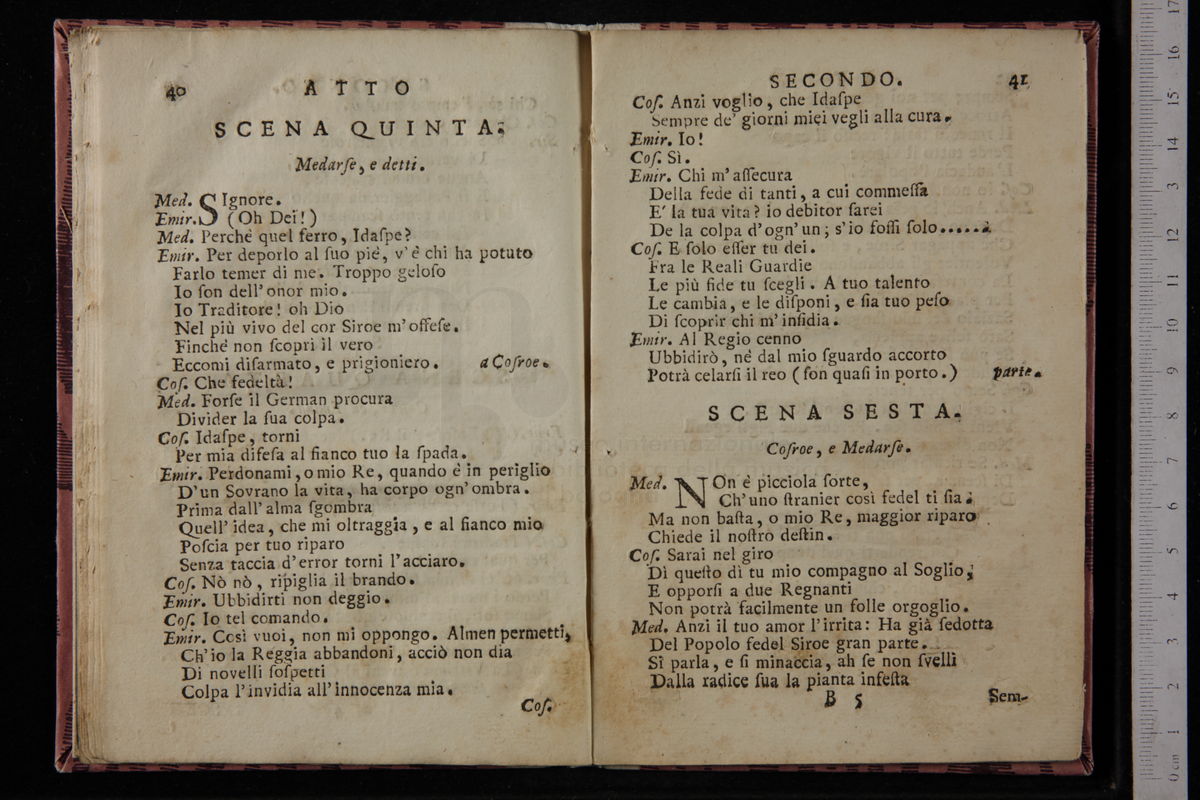 40 ATTO
SCENA QUINTA.
Medarſe, e detti.
Med. SIgnore.
Emir. (Oh Dei!)
Med. Perchè quel ferro, Idaſpe?
Emir. Per deporlo al ſuo piè, v'è chi ha potuto
Farlo temer di me. Troppo geloſo
Io ſon dell'onor mio.
Io Traditore! oh Dio
Nel più vivo del cor Siroe m'offeſe.
Finchè non ſcopri il vero
Eccomi diſarmato, e prigioniero. a Coſroe.
Coſ. Che fedeltà!
Med. Forſe il German procura
Divider la ſua colpa.
Coſ. Idaſpe, torni
Per mia difeſa al fianco tuo la ſpada.
Emir. Perdonami, o mio Re, quando è in periglio
D'un Sovrano la vita, ha corpo ogn'ombra.
Prima dall'alma ſgombra
Quell'idea, che mi oltraggia, e al fianco mio
Poſcia per tuo riparo
Senza taccia d'error torni l'acciaro.
Coſ. Nò nò, ripiglia il brando.
Emir. Ubbidirti non deggio.
Coſ. Io tel comando.
Emir. Così vuoi, non mi oppongo. Almen permetti,
Ch'io la Reggia abbandoni, acciò non dia
Di novelli ſoſpetti
Colpa l'invidia all'innocenza mia.
Coſ.
SECONDO. 41
Coſ. Anzi voglio, che Idaſpe
Sempre de' giorni miei vegli alla cura.
Emir. Io!
Coſ. Sì.
Emir. Chi m'aſſecura
Della fede di tanti, a cui commeſſa
E' la tua vita? io debitor ſarei
De la colpa d'ogn'un; s'io foſſi ſolo.....
Coſ. E ſolo eſſer tu dei.
Fra le Reali Guardie
Le più fide tu ſcegli. A tuo talento
Le cambia, e le diſponi, e ſia tuo peſo
Di ſcoprir chi m'inſidia.
Emir. Al Regio cenno
Ubbidirò, nè dal mio ſguardo accorto
Potrà celarſi il reo (ſon quaſi in porto.) parte.
SCENA SESTA.
Coſroe, e Medarſe.
Med. NOn è picciola ſorte,
Ch'uno ſtranier così fedel ti ſia;
Ma non baſta, o mio Re, maggior riparo
Chiede il noſtro deſtin.
Coſ. Sarai nel giro
Di queſto dì tu mio compagno al Soglio;
E opporſi a due Regnanti
Non potrà facilmente un folle orgoglio.
Med. Anzi il tuo amor l'irrita: Ha già ſedotta
Del Popolo fedel Siroe gran parte.
Si parla, e ſi minaccia, ah ſe non ſvelli
Dalla radice ſua la pianta infeſta
B 5 Sem-